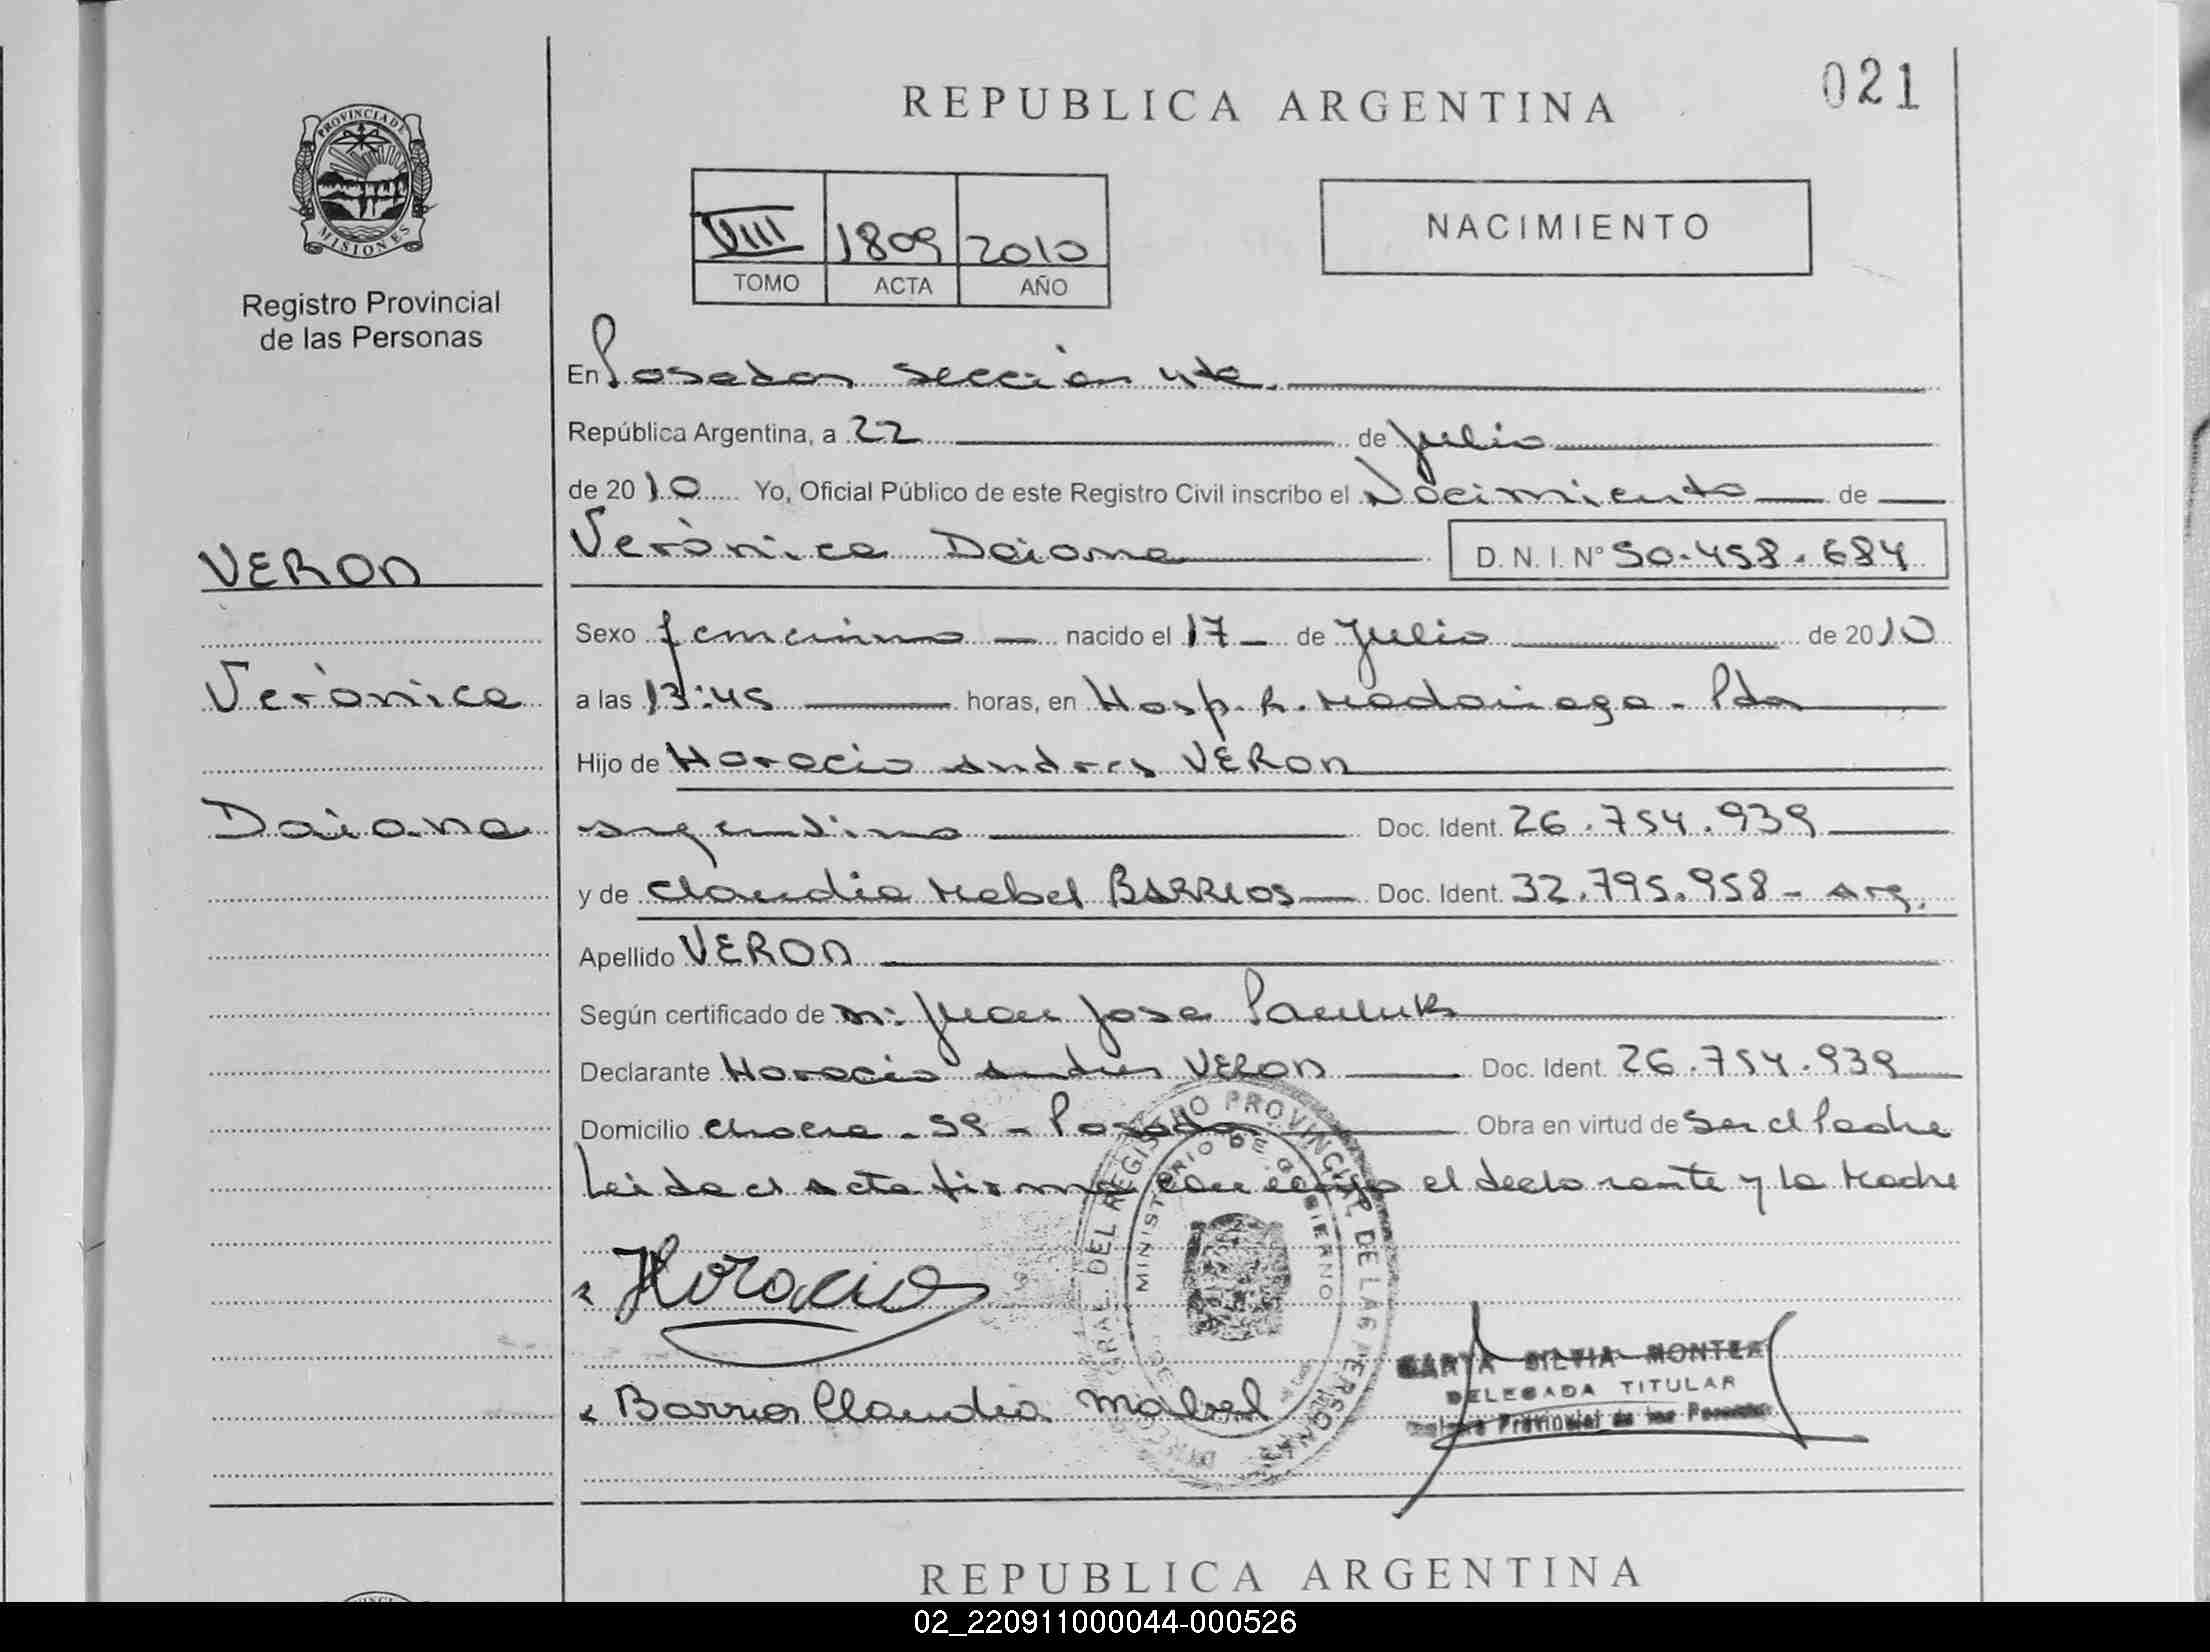 021
REPUBLICA ARGENTINA
PROVINCIA DE MISIONES
Registro Provincial
de las Personas
VIII 1809 2010
TOMO ACTA AÑO
NACIMIENTO
En Posadas Sección 4ta.
República Argentina, a 22 de Julio
de 2010 Yo, Oficial Público de este Registro Civil inscribo el Nacimiento de
Verónica Daiana D. N. I. N° 50.458.684
VERON
Verónica
Daiana
Sexo femenino nacido el 17 de Julio de 2010
a las 13:45 horas, en Hosp. R. Madariaga - Pdas
Hijo de Horacio Andres VERON
argentino Doc. Ident. 26.754.939
y de Claudia Mabel BARRIOS Doc. Ident. 32.795.958 - arg.
Apellido VERON
Según certificado de Juan Jose
Declarante Horacio Andres VERON Doc. Ident. 26.754.939
Domicilio Chacra - 59 - Posadas Obra en virtud de Ser el Padre
Leida el acta firma conmigo el declarante y la Madre
Horacio
Barrios Claudia Mabel
DIRECCION GRAL. DEL REGISTRO PROVINCIAL DE LAS PERSONAS
MINISTERIO DE GOBIERNO
SILVIA
DELEGADA TITULAR
Provincial de las Personas
REPUBLICA ARGENTINA
02_220911000044-000526